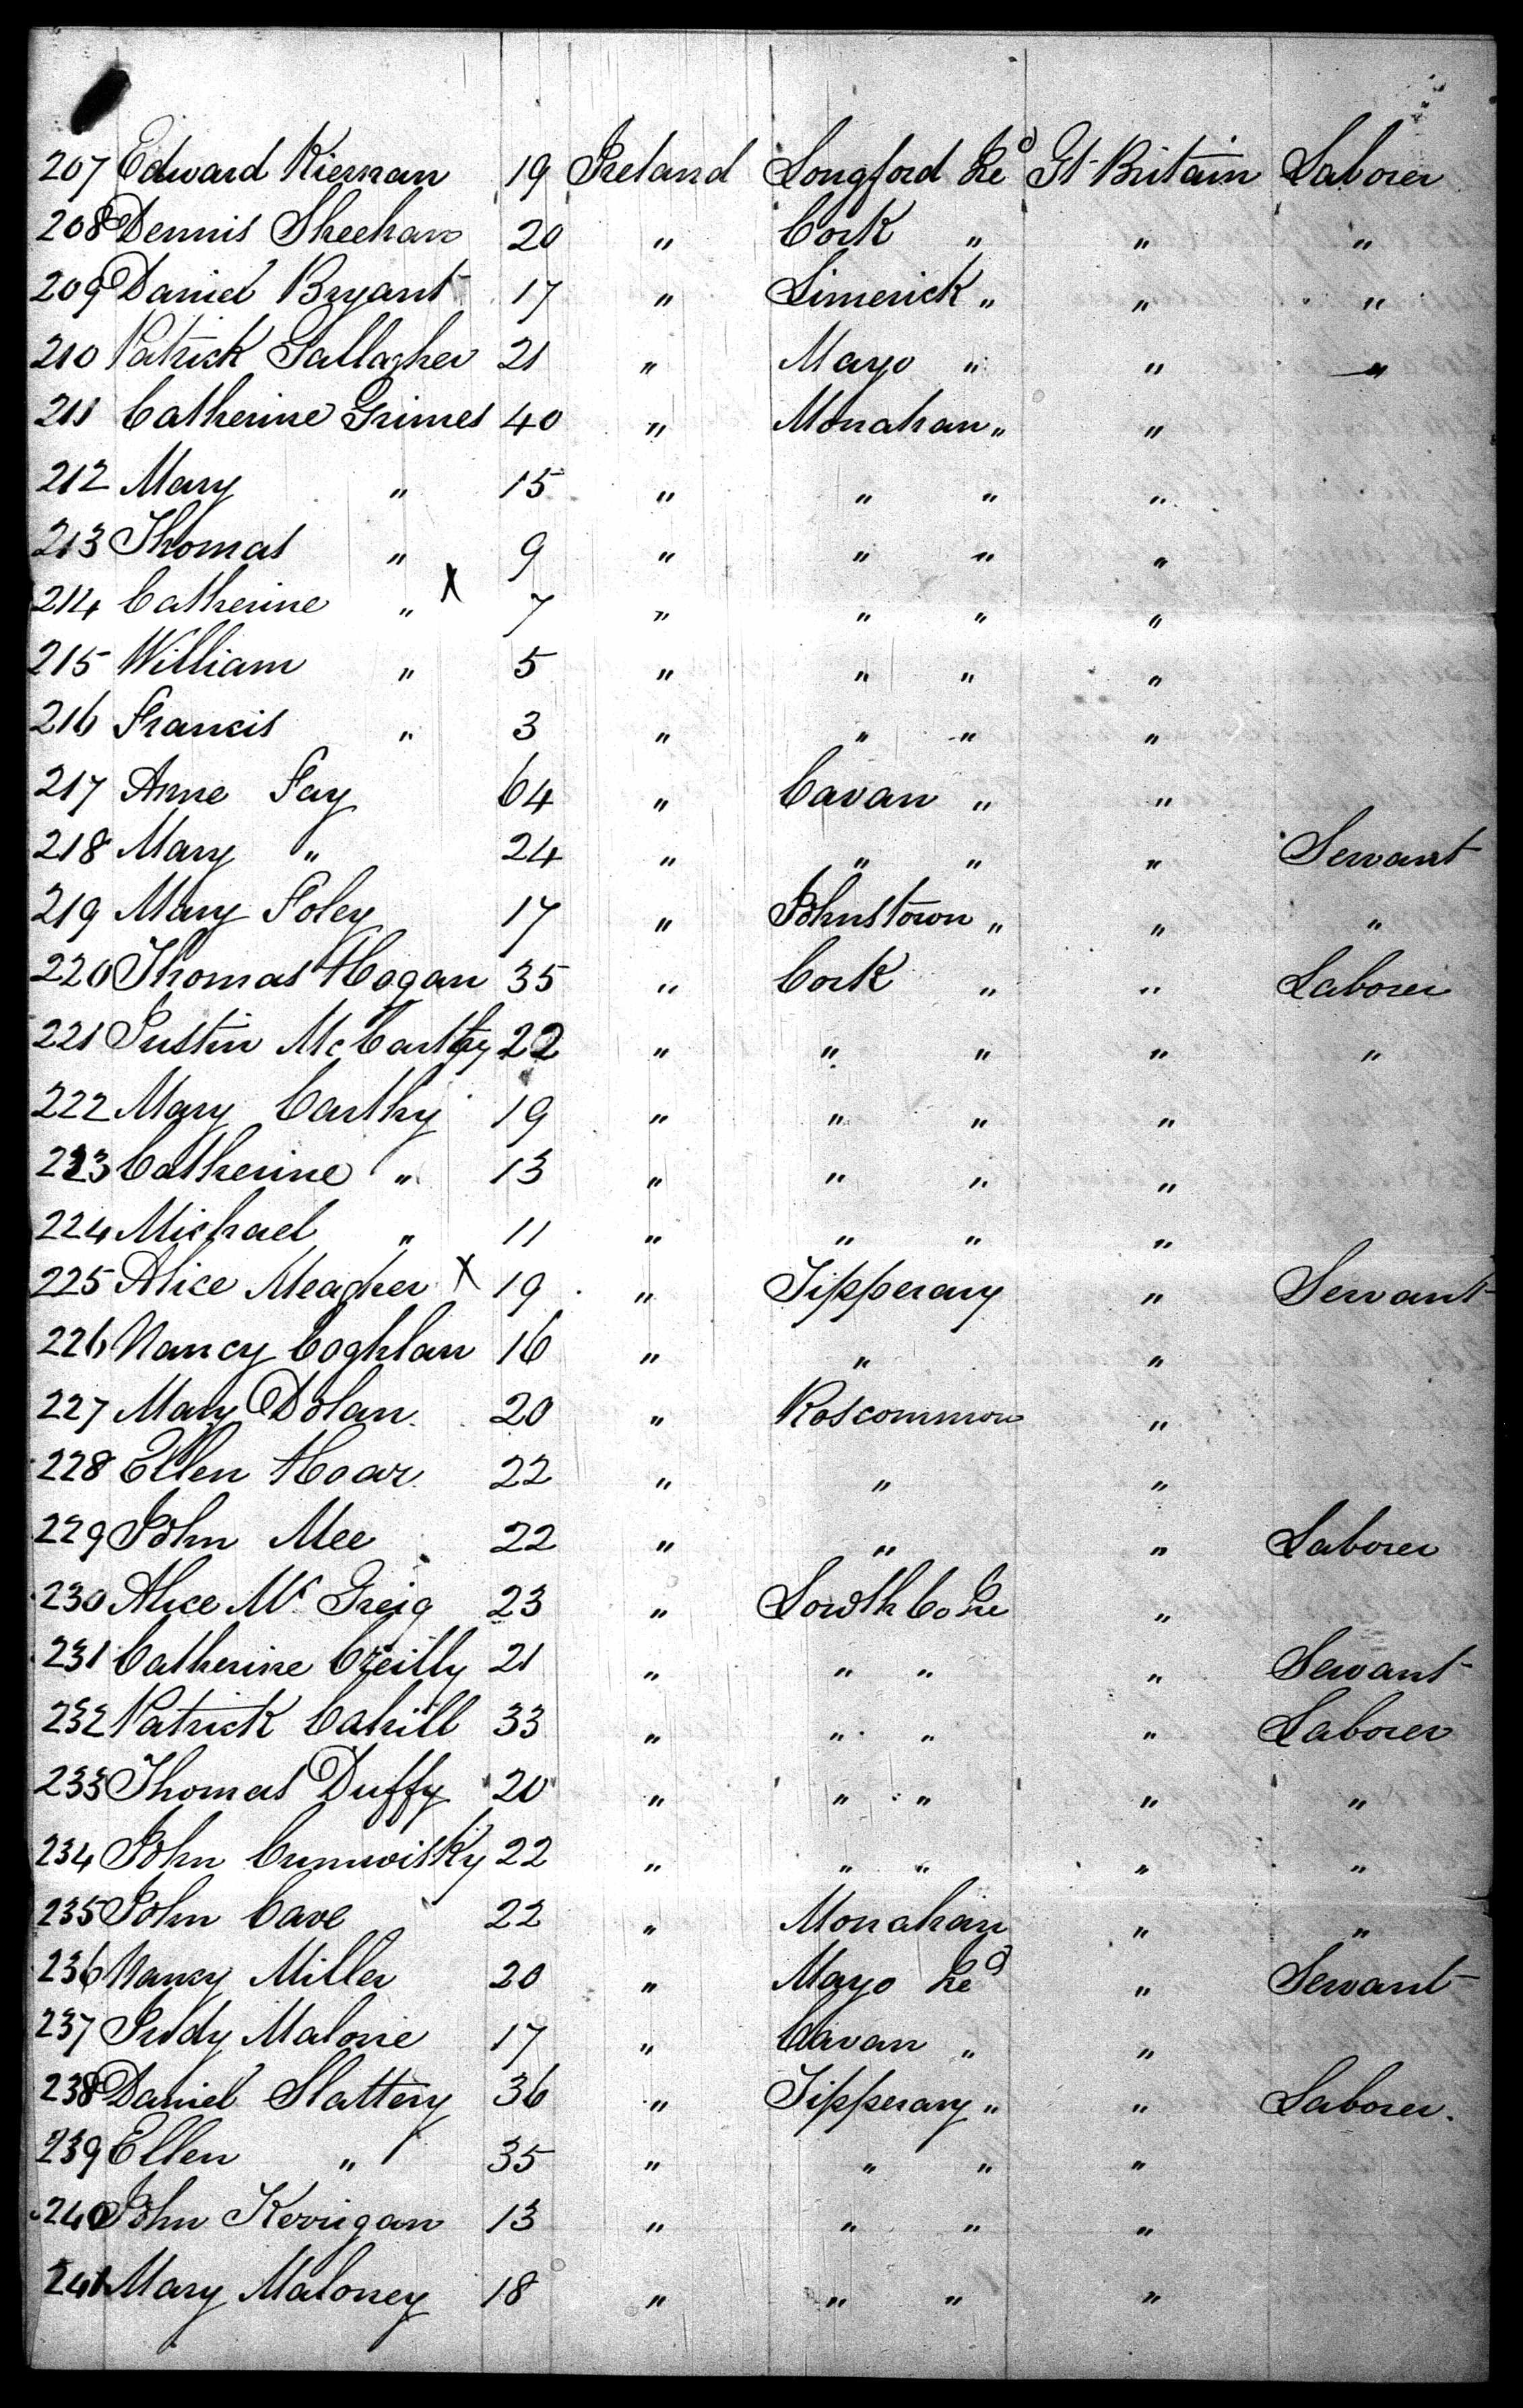 207 Edward Kiernan 19 Ireland Longford Ired Gt Britain Laborer
208 Dennis Sheehan 20 " Cork " " "
209 Daniel Bryant 17 " Limerick " " "
210 Patrick Gallagher 21 " Mayo " " "
211 Catherine Grimes 40 " Monahan " "
212 Mary " 15 " " " "
213 Thomas " 9 " " " "
214 Catherine " X 7 " " " "
215 William " 5 " " " "
216 Francis " 3 " " " "
217 Anne Fay 64 " Cavan " "
218 Mary " 24 " " " " Servant
219 Mary Foley 17 " Johnstown " " "
220 Thomas Hogan 35 " Cork " " Laborer
221 Justin McCarthy 22 " " " " "
222 Mary Carthy 19 " " " "
223 Catherine " 13 " " " "
224 Michael " 11 " " " "
225 Alice Meagher X 19 " Tipperary " Servant
226 Nancy Coghlan 16 " " "
227 Mary Dolan 20 " Roscommon "
228 Ellen Hoar 22 " " "
229 John Mee 22 " " " Laborer
230 Alice Mc Greig 23 " Lowth Co Ire "
231 Catherine Creilly 21 " " " " Servant
232 Patrick Cahill 33 " " " " Laborer
233 Thomas Duffy 20 " " " " "
234 John 22 " " " " "
235 John Cave 22 " Monahan " "
236 Nancy Miller 20 " Mayo Ired " Servant
237 Judy Malone 17 " Cavan " "
238 Daniel Slattery 36 " Tipperary " " Laborer.
239 Ellen " 35 " " " "
240 John Kerrigan 13 " " " "
241 Mary Maloney 18 " " " "